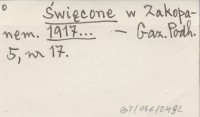 Święcone w Zakopa-
nem. 1917... — Gaz. Podh.
5, nr 17.
BT/046/2492